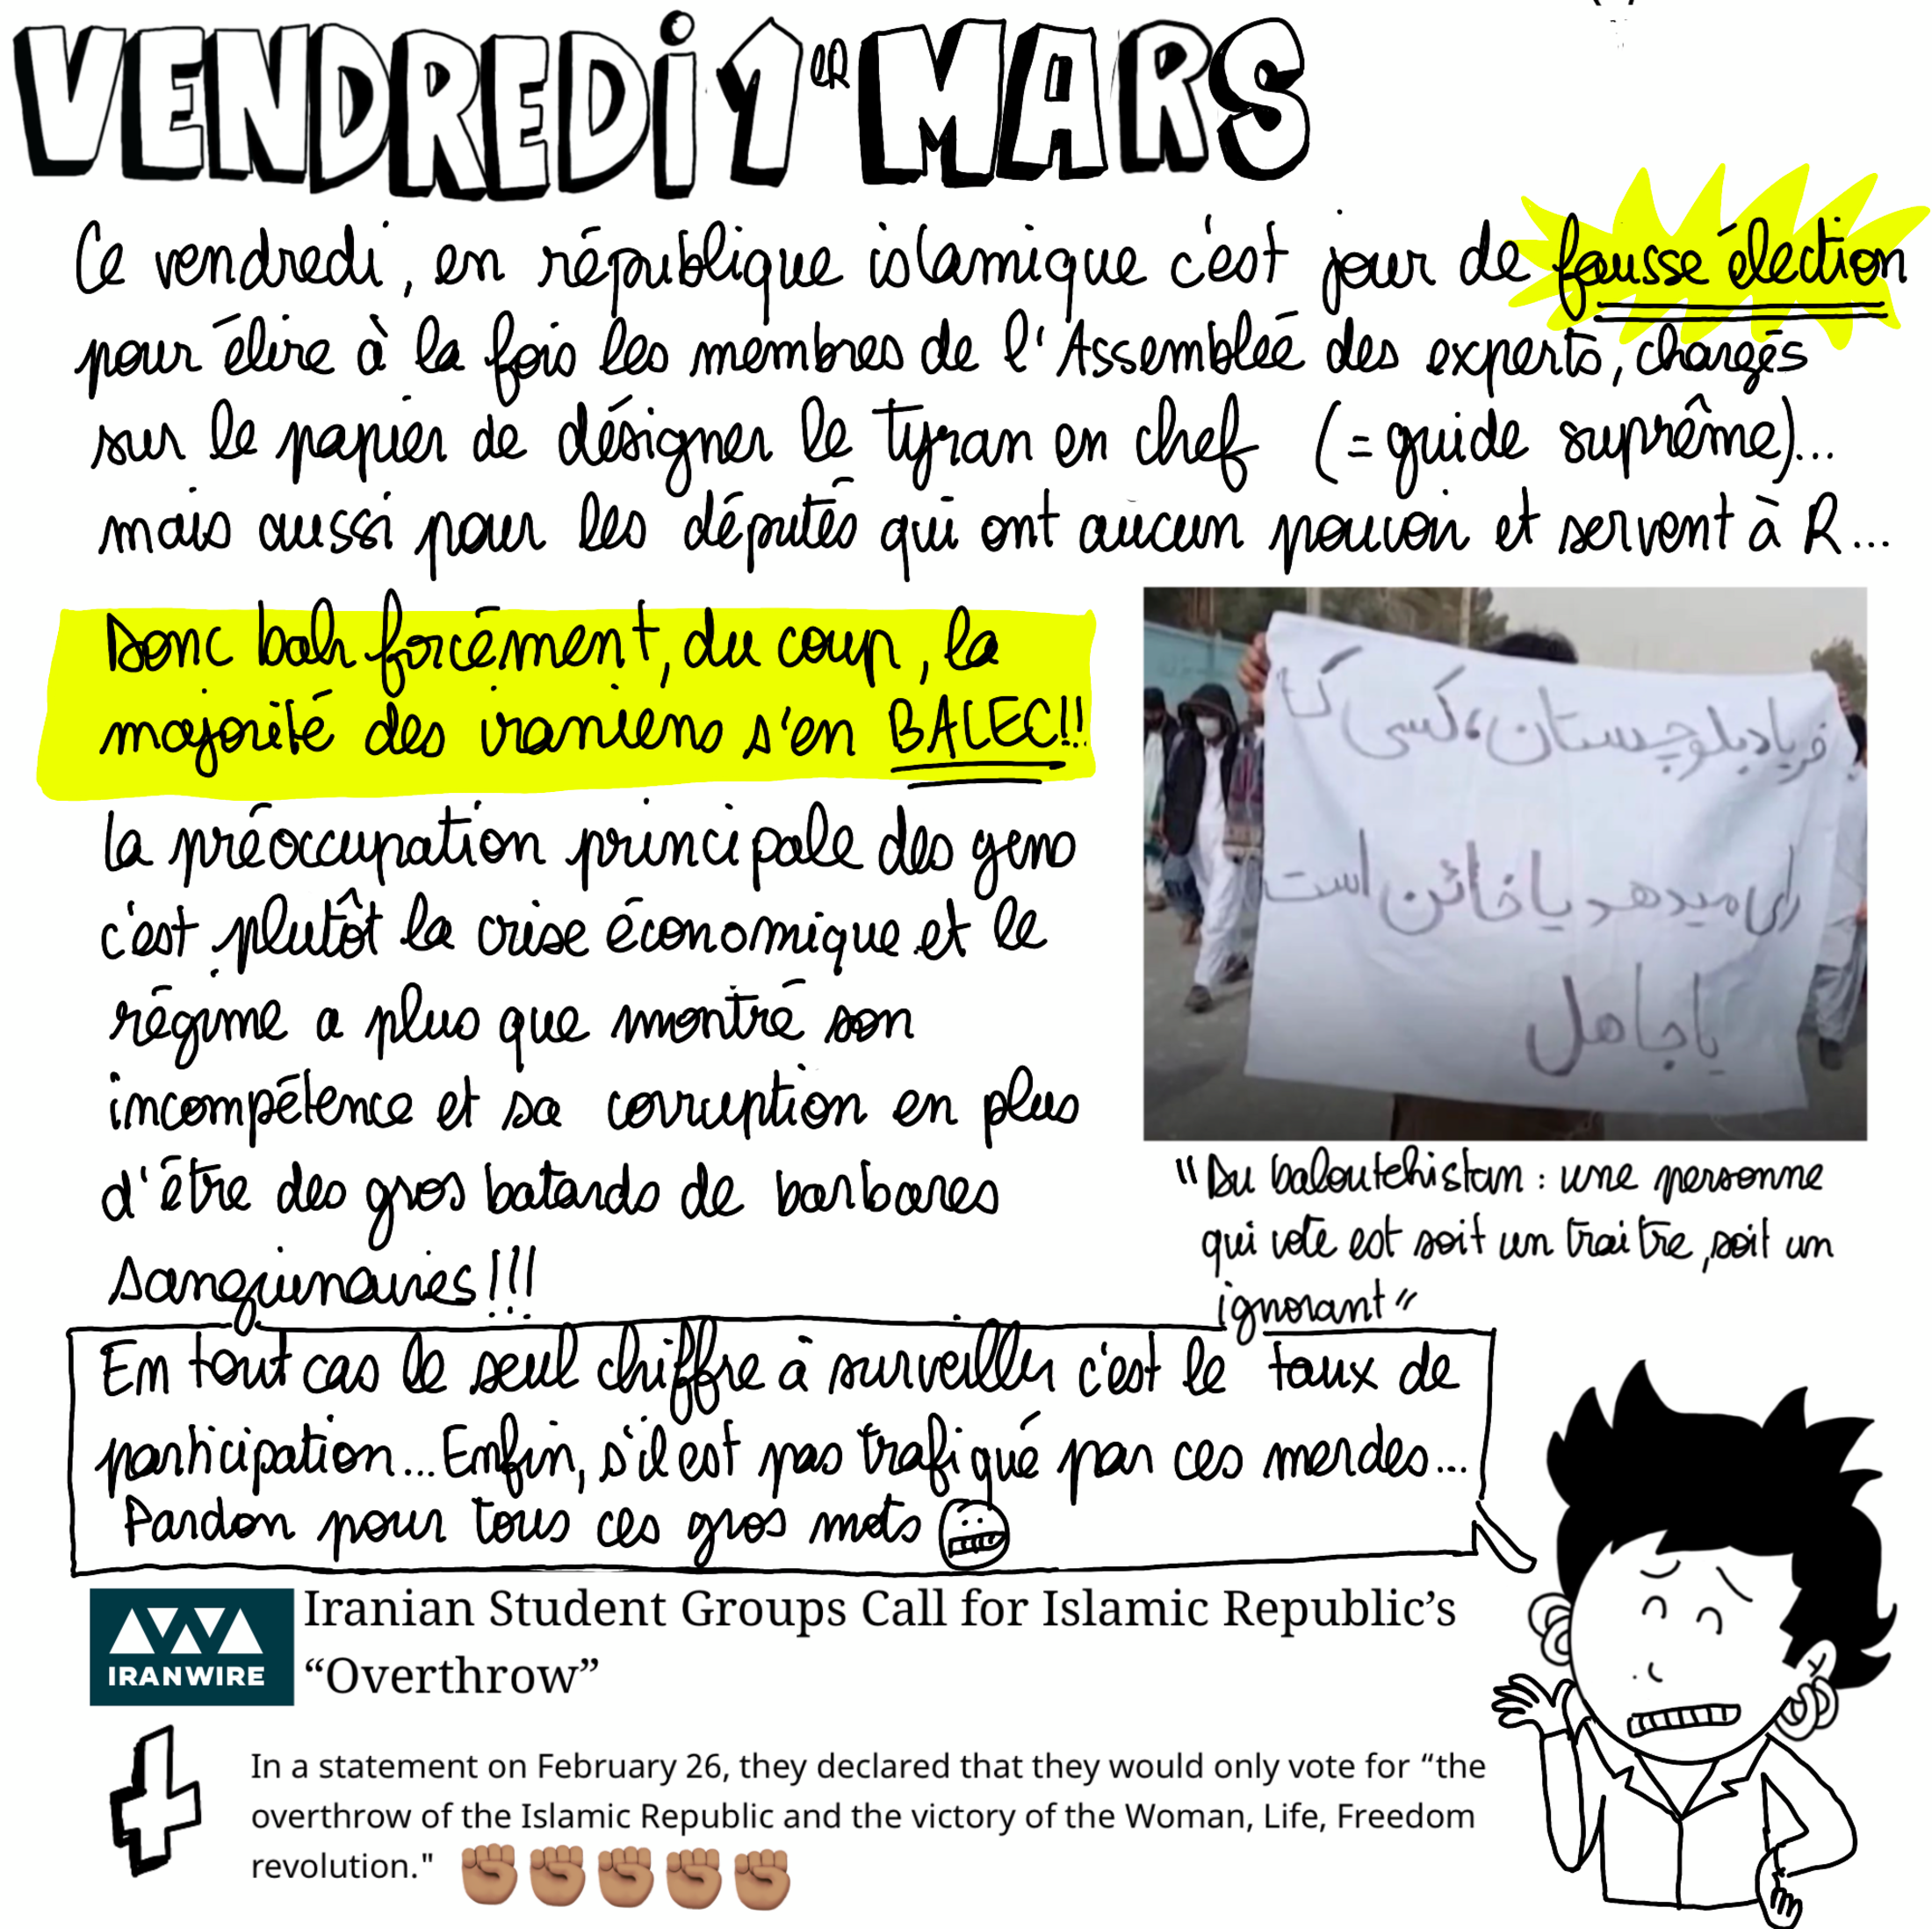 VENDREDI 1ER MARS
Ce vendredi, en république islamique c'est jour de fausse élection
pour élire à la fois les membres de l'Assemblée des experts, chargés
sur le papier de désigner le tyran en chef (= guide suprême)...
mais aussi pour les députés qui ont aucun pouvoir et servent à R...
Donc bah forcément, du coup, la
majorité des iraniens s'en BALEC!!
la préoccupation principale des gens
c'est plutôt la crise économique et le
régime a plus que montré son
incompétence et sa corruption en plus
d'être des gros batards de barbares
sanguinaires!!!
فریاد بلوچستان، کسی که
رای میدهد یا خائن است
یا جاهل
"Du baloutchistan : une personne
qui vote est soit un traitre, soit un
ignorant"
En tout cas le seul chiffre à surveiller c'est le taux de
participation... Enfin, s'il est pas trafiqué par ces merdes...
Pardon pour tous ces gros mots
IRANWIRE
Iranian Student Groups Call for Islamic Republic's
“Overthrow”
In a statement on February 26, they declared that they would only vote for “the
overthrow of the Islamic Republic and the victory of the Woman, Life, Freedom
revolution."